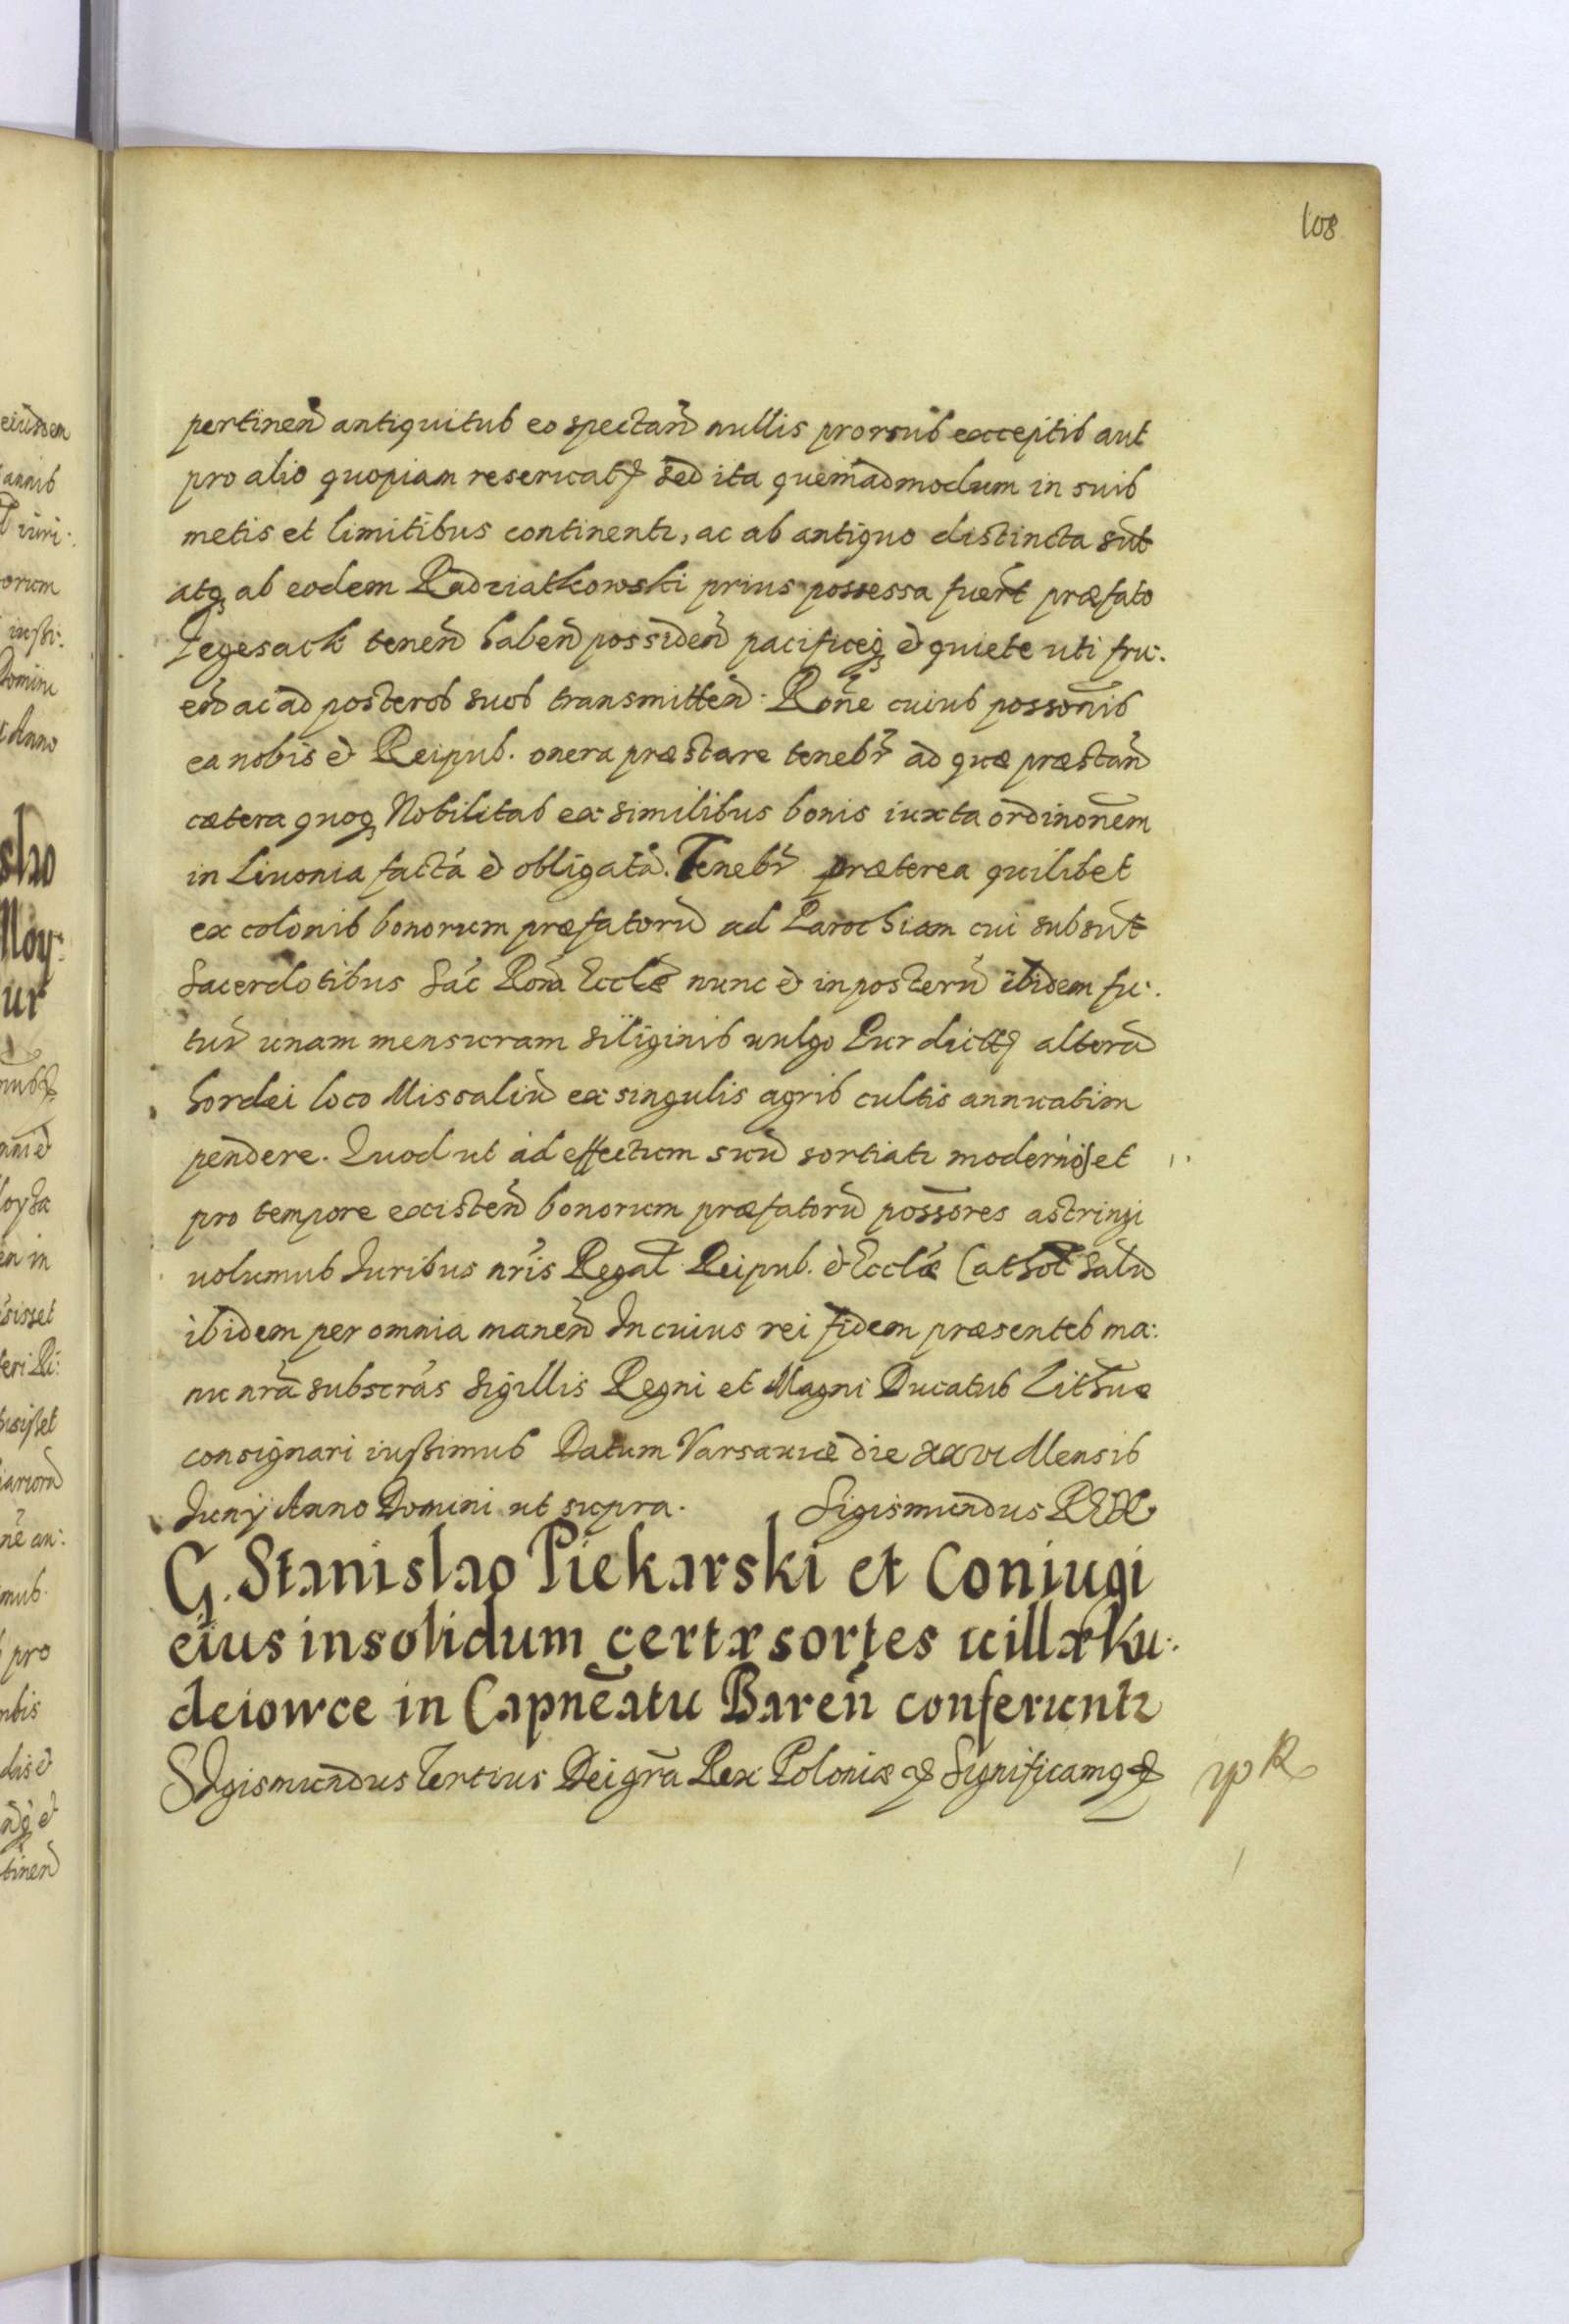 108
pertineñ antiquitus eo spectañ nullis prorsus exceptis aut
pro alio quopiam reseruatꝭ sed ita quemadmodum in suis
metis et limitibus continentr, ac ab antiquo distincta sũt
atqꝫ ab eodem Radziatkowski prius possessa fuert̃ præfato
Tegesack teneñ habeñ possideñ pacificeqꝫ et quiete uti fru:
eñ ac ad posteros suos transmitteñ. Rõne cuius possõnis
ea nobis et Reipub. onera præstare tenebr̃ ad quæ præstañ
cætera quoqꝫ Nobilitas ex similibus bonis iuxta ordinõnem
in Liuonia factã et obligatã. Tenebr̃ præterea quilibet
ex colonis bonorum præfatorũ ad Parochiam cui subsũt
Sacerdotibus Sãc Rom̃ Ecclæ̃ nunc et in posterũ ibidem fu:
tur̃ unam mensuram siliginis uulgo Pur dictꝭ alterã
hordei loco Missaliũ ex singulis agris cultis annuatim
pendere. Quod ut ad effectum suũ sortiatr modernos et
pro tempore existeñ bonorum præfatorũ possõres astringi
uolumus Juribus nr̃is Regal̃ Reipub. et Ecclæ̃ Cathol̃ saluĩ
ibidem per omnia maneñ In cuius rei fidem præsentes ma:
nu nr̃a subscr̃as Sigillis Regni et Magni Ducatus Lithuæ
consignari iussimus Datum Varsauiæ die xxvi Mensis
Junij Anno Domini ut supra. Sigismundus REX
G. Stanislao Piekarski et Coniugi
eius insolidum certæ sortes uillæ Ku:
deiowce in Capnẽatu Bareñ conferuntr
SIgismundus Tertius Dei gr̃a Rex Poloniæ ꝭ Significamꝯ ꝭ